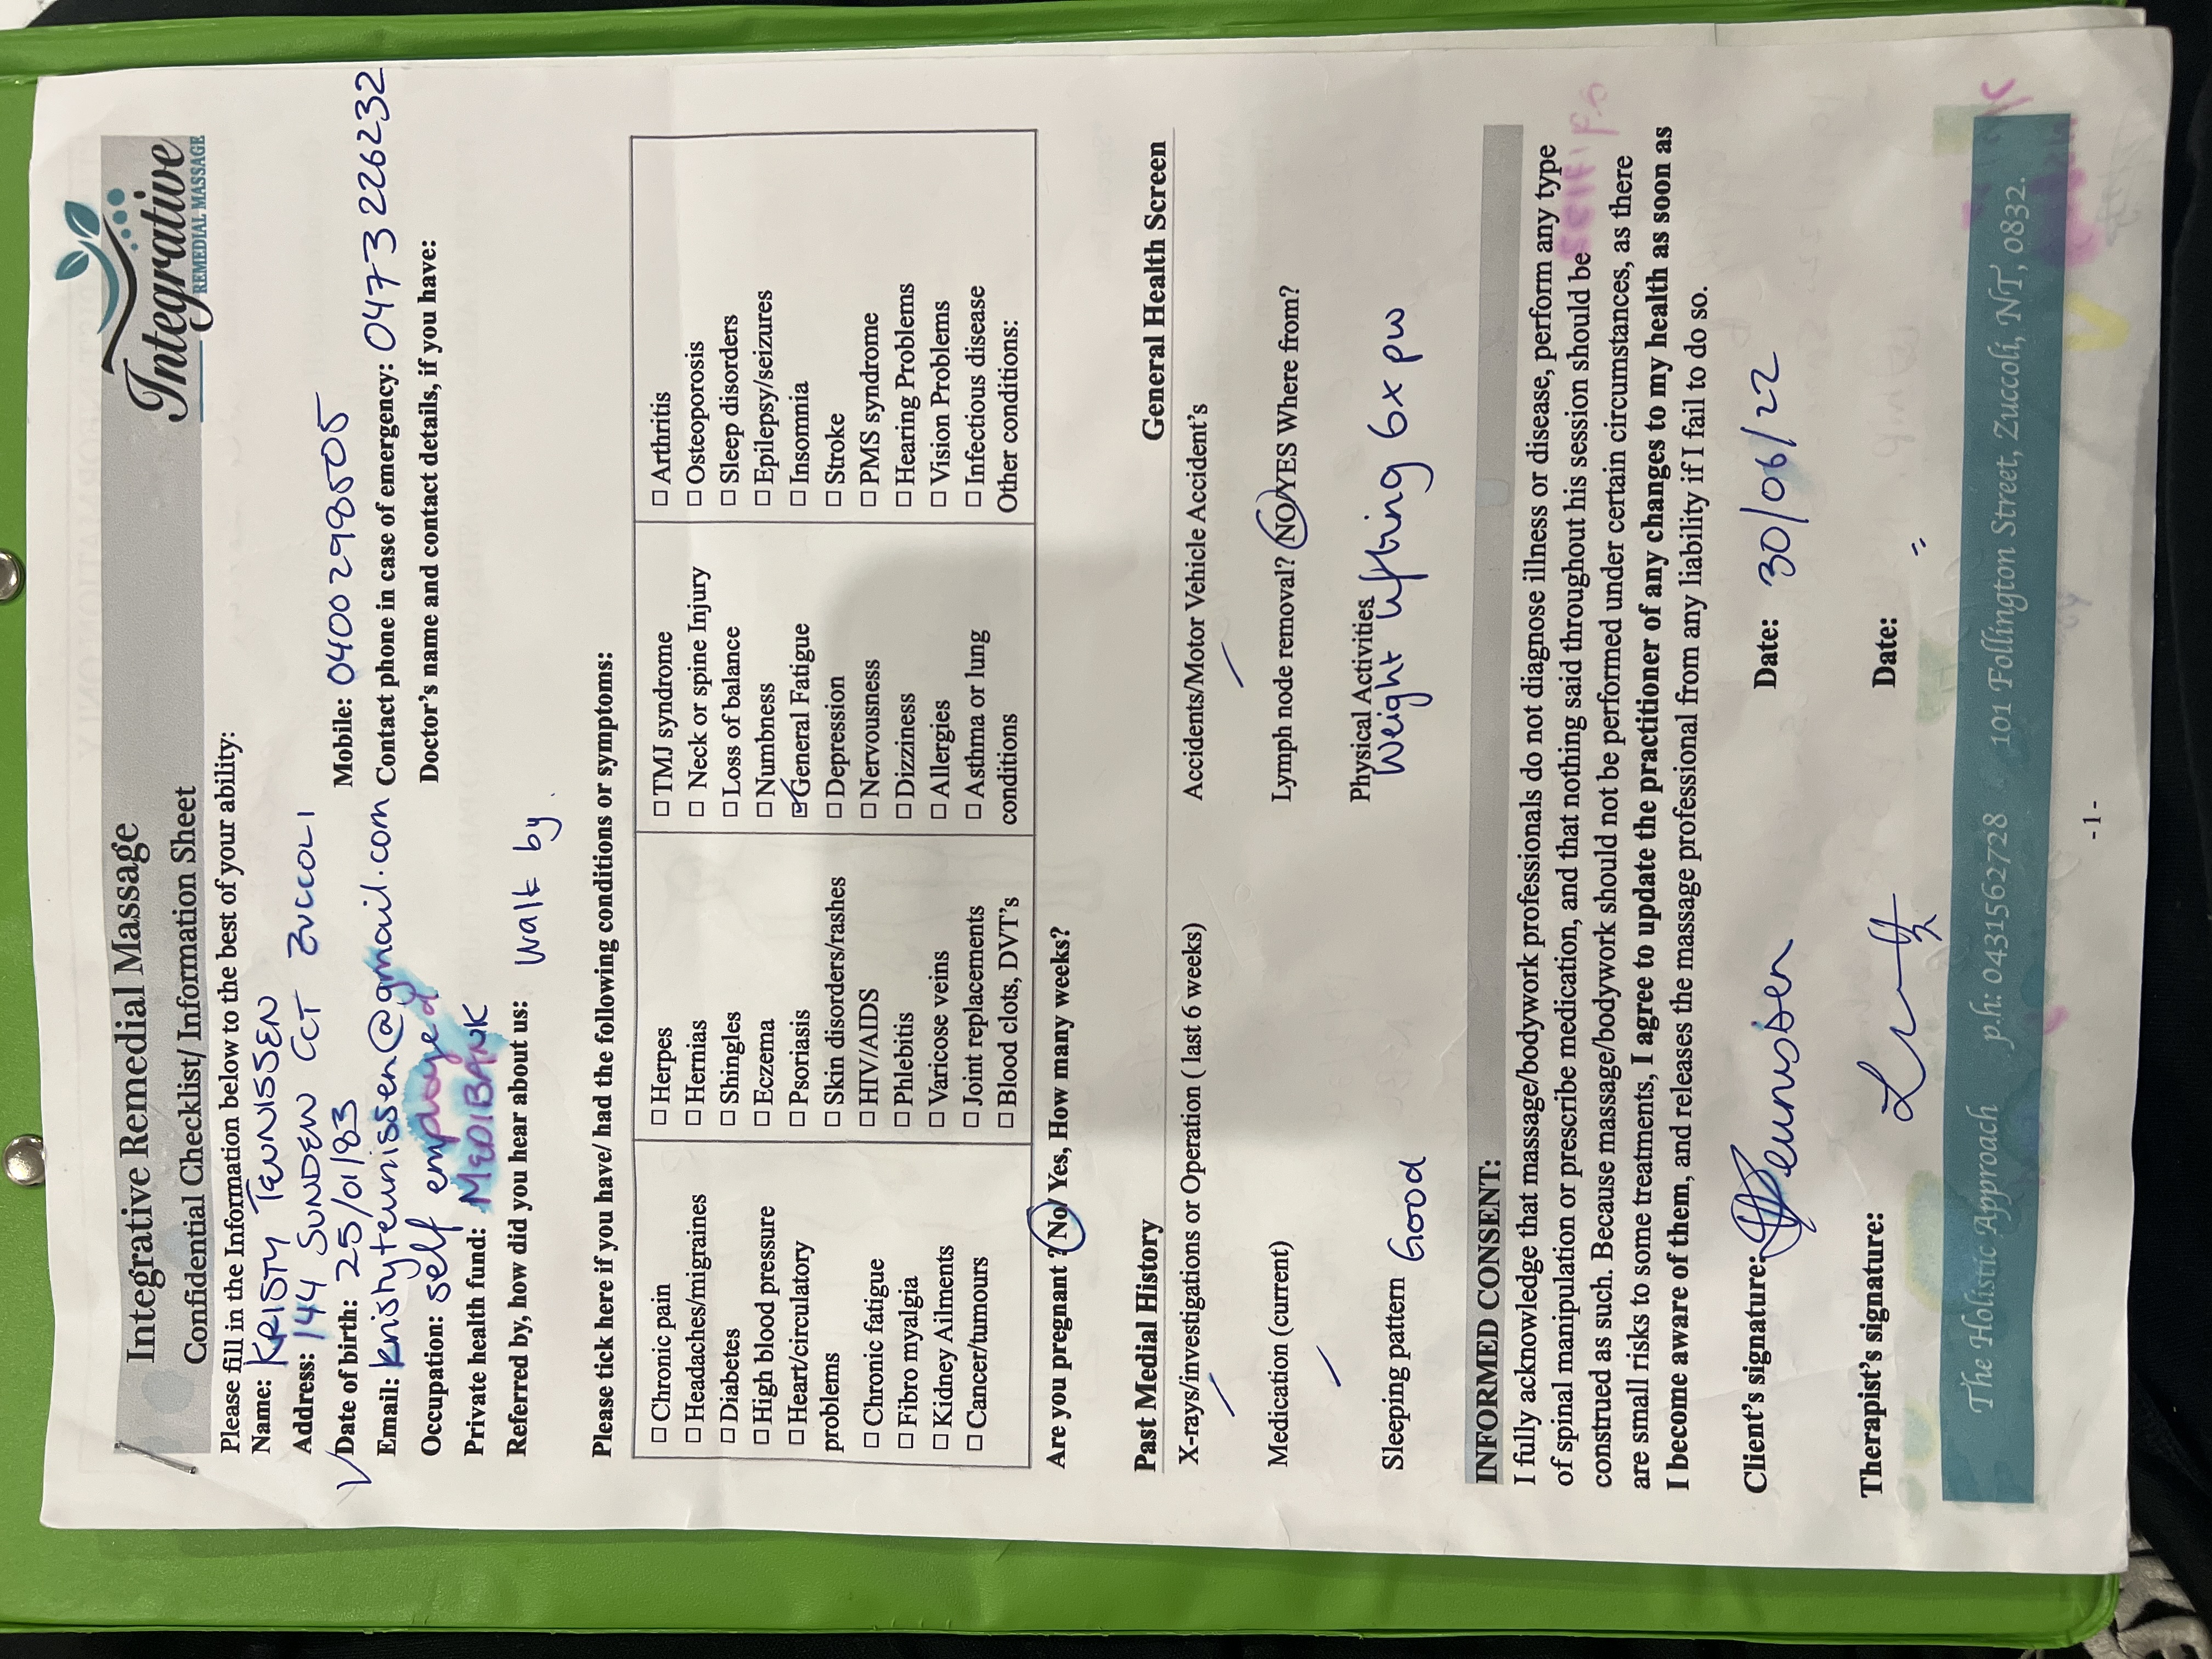 Integrative Remedial Massage
Confidential Checklist/ Information Sheet
Integrative
REMEDIAL MASSAGE
Please fill in the Information below to the best of your ability:
Name: KRISTY TEUNISSEN
Address: 144 SUNDEW CCT ZUCCOLI
Date of birth: 25/01/83 Mobile: 0400 298505
Email: kristyteunissen@gmail.com Contact phone in case of emergency: 0473 226232
Occupation: self employed Doctor's name and contact details, if you have:
Private health fund: MEDIBANK
Referred by, how did you hear about us: Walk by.
Please tick here if you have/ had the following conditions or symptoms:
☐ Chronic pain
☐ Headaches/migraines
☐ Diabetes
☐ High blood pressure
☐ Heart/circulatory
problems
☐ Chronic fatigue
☐ Fibro myalgia
☐ Kidney Ailments
☐ Cancer/tumours
☐ Herpes
☐ Hernias
☐ Shingles
☐ Eczema
☐ Psoriasis
☐ Skin disorders/rashes
☐ HIV/AIDS
☐ Phlebitis
☐ Varicose veins
☐ Joint replacements
☐ Blood clots, DVT's
☐ TMJ syndrome
☐ Neck or spine Injury
☐ Loss of balance
☐ Numbness
☑ General Fatigue
☐ Depression
☐ Nervousness
☐ Dizziness
☐ Allergies
☐ Asthma or lung
conditions
☐ Arthritis
☐ Osteoporosis
☐ Sleep disorders
☐ Epilepsy/seizures
☐ Insomnia
☐ Stroke
☐ PMS syndrome
☐ Hearing Problems
☐ Vision Problems
☐ Infectious disease
Other conditions:
Are you pregnant ? No/ Yes, How many weeks?
Past Medial History
General Health Screen
X-rays/investigations or Operation ( last 6 weeks)
Accidents/Motor Vehicle Accident's
Medication (current)
Lymph node removal? NO/YES Where from?
Sleeping pattern Good
Physical Activities
Weight lifting 6x pw
INFORMED CONSENT:
I fully acknowledge that massage/bodywork professionals do not diagnose illness or disease, perform any type
of spinal manipulation or prescribe medication, and that nothing said throughout his session should be
construed as such. Because massage/bodywork should not be performed under certain circumstances, as there
are small risks to some treatments, I agree to update the practitioner of any changes to my health as soon as
I become aware of them, and releases the massage professional from any liability if I fail to do so.
Client's signature: Teunissen Date: 30/06/22
Therapist's signature: Date: "
The Holistic Approach ph: 0431562728 101 Follington Street, Zuccoli, NT, 0832.
-1-